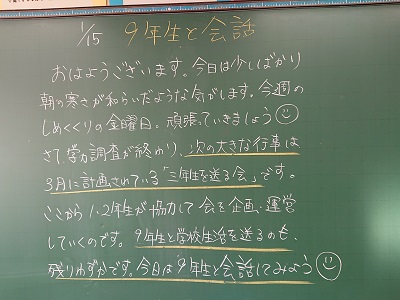 1/15 9年生と会話
おはようございます。今日は少しばかり
朝の寒さが和らいだような気がします。今週の
しめくくりの金曜日。頑張っていきましょう
さて、学力調査が終わり、次の大きな行事は
3月に計画されている「三年生を送る会」です。
ここから1・2年生が協力して会を企画・運営
していくのです。9年生と学校生活を送るのも、
残りわずかです。今日は9年生と会話してみよう